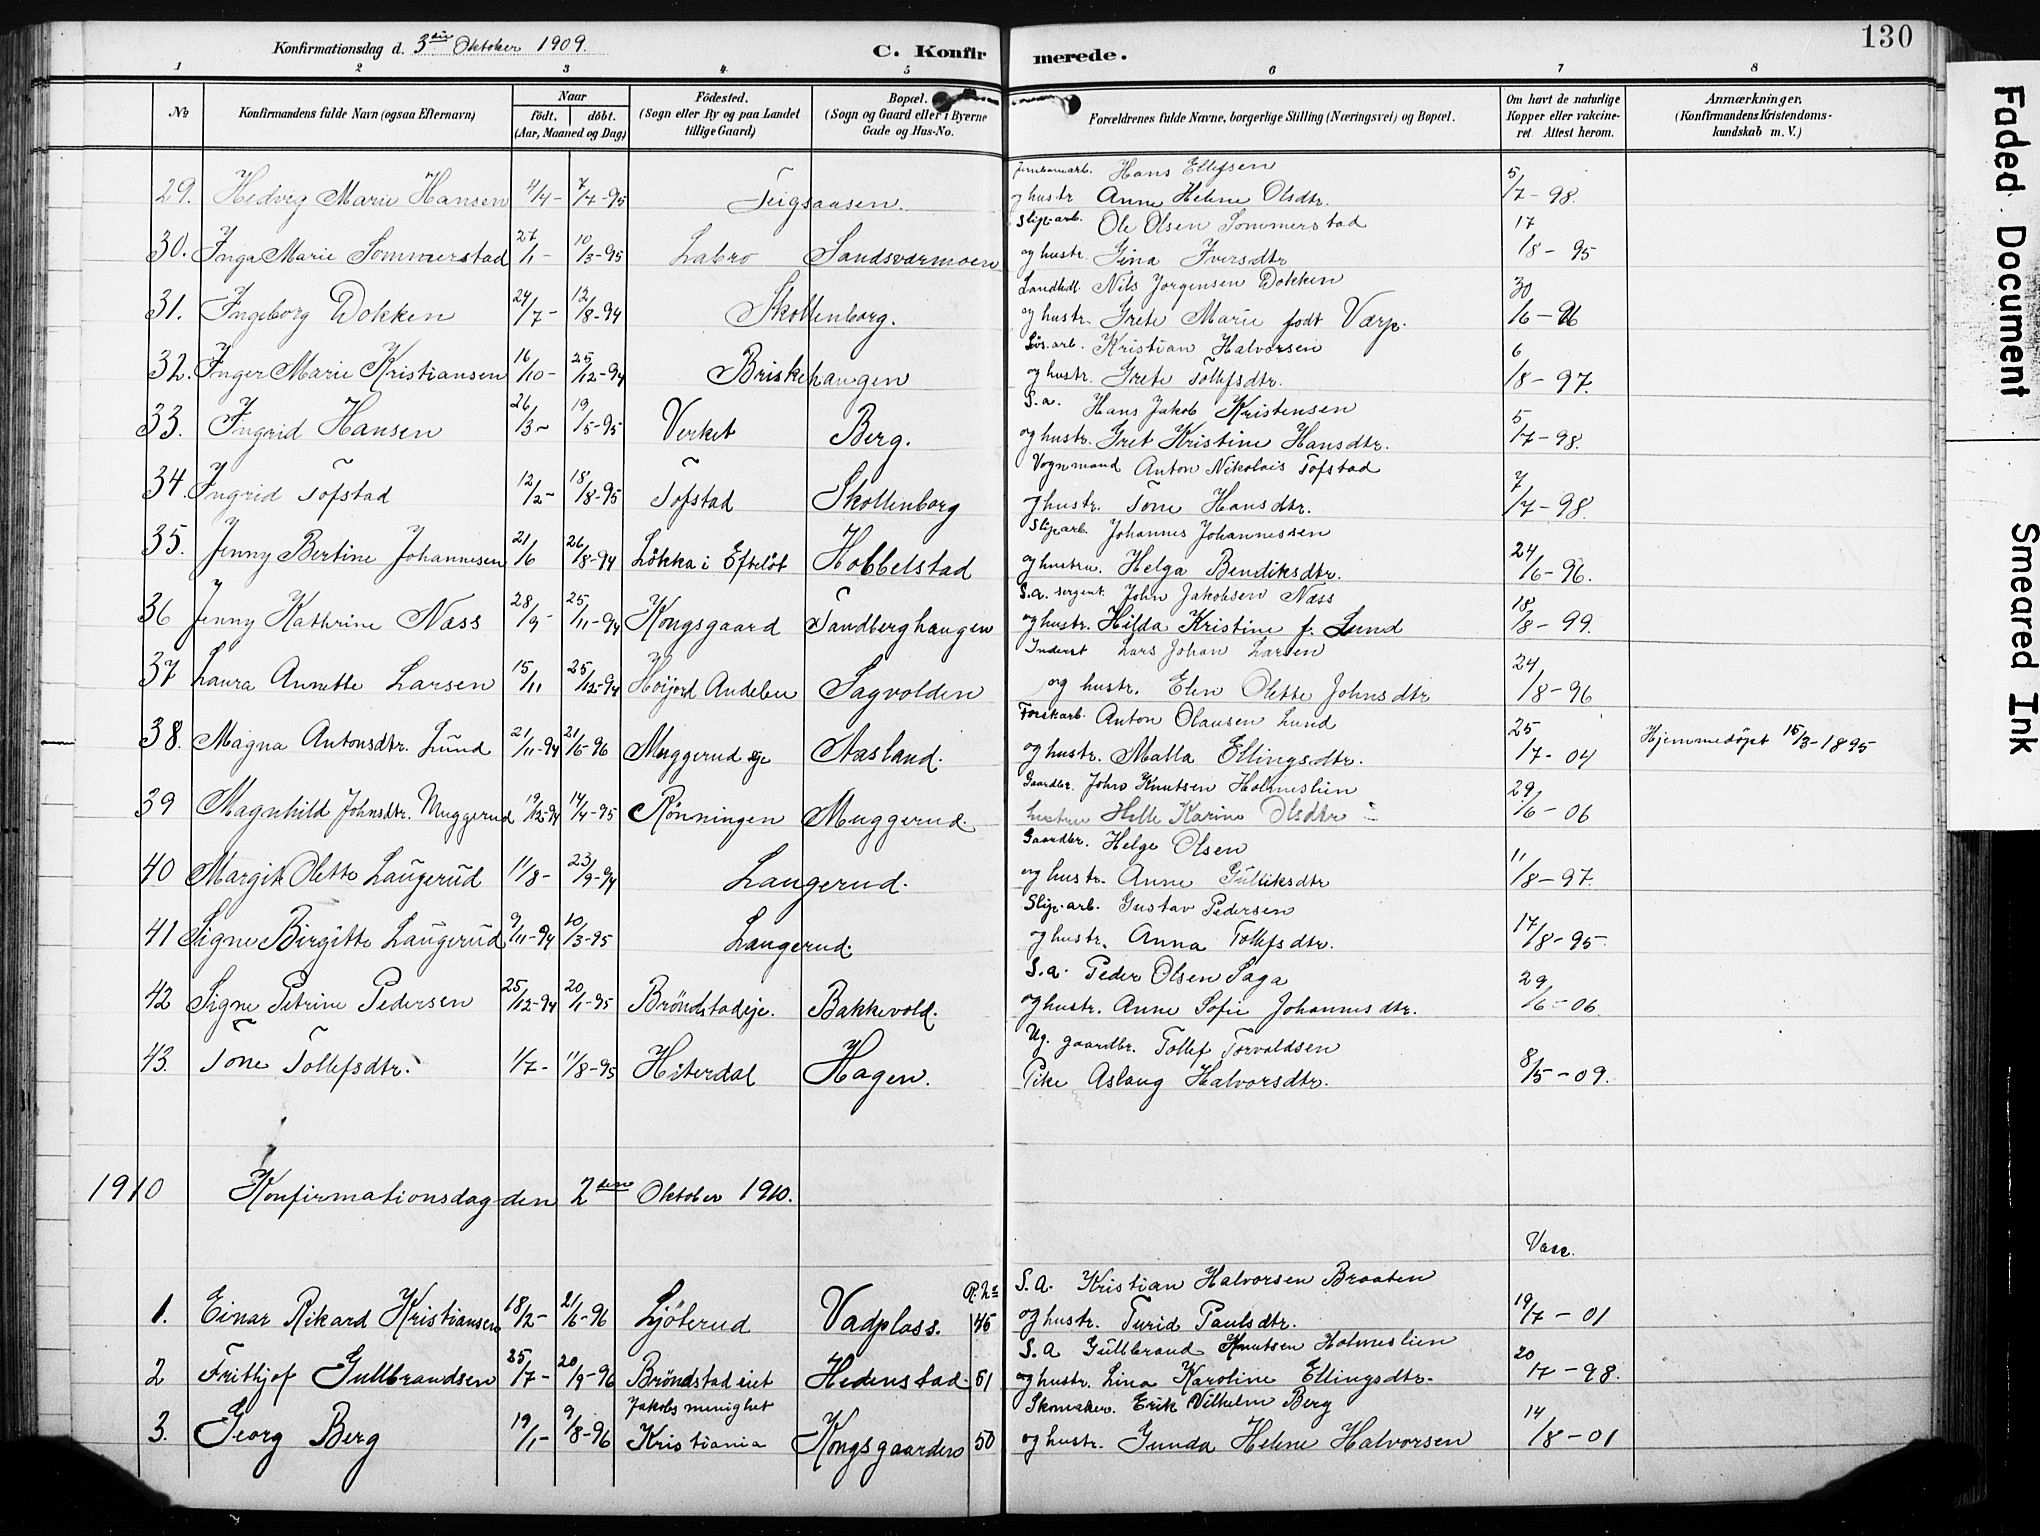 130
Konfirmationsdag d. 3die Oktober 1909.
C. Konfirmerede.
1 2 3 4 5 6 7 8
No
Konfirmandens fulde Navn (ogsaa Efternavn)
Naar
født. døbt.
(Aar, Maaned og Dag)
Fødested.
(Sogn eller By og paa Landet
tillige Gaard)
Bopæl.
(Sogn og Gaard eller i Byerne
Gade og Hus-No.
Forældrenes fulde Navne, borgerlige Stilling (Næringsvei) og Bopæl.
Om havt de naturlige
Kopper eller vaccine-
ret Attest herom.
Anmærkninger.
(Konfirmandens Kristendoms-
kundskab m. V.)
Jernbanearb. Hans Ellefsen
29. Hedvig Marie Hansen 4/4- 7/7-95 Teigsaasen. og hustr. Anne Helene Olsdtr. 5/7-98.
Slip.arb. Ole Olsen Sommerstad
30. Inga Marie Sommerstad 27/1- 10/3-95 Labro Sandsværmoen og hustr. Gina Iversdtr 17/8-95
Landhdl. Nils Jørgensen Dokken
31. Ingeborg Dokken 24/7- 12/8-94 Skollenborg. og hustr. Grete Marie født Værp. 30/6-96
Løs.arb. Kristian Halvorsen
32. Inger Marie Kristiansen 16/10- 25/12-94 Briskehaugen og hustr. Grete Tollefsdtr. 6/8-97.
S.a. Hans Jakob Kristensen
33. Ingrid Hansen 26/3- 19/5-95 Verket Berg. og hustr. Gret Kristine Hansdtr. 5/7-98.
Vognmand Anton Nikolais Tofstad
34. Ingrid Tofstad 12/2- 18/8-95 Tofstad Skollenborg og hustr. Tone Hansdtr. 7/7-98.
Slip.arb. Johannes Johannessen
35. Jenny Bertine Johannesen 21/6 26/8-94 Løkka i Efteløt Hobbelstad og hustru. Helga Bendiksdtr. 24/6-96.
S.a. sergent. John Jakobsen Næss
36 Jenny Kathrine Næss 28/9- 25/11-94 Kongsgaard Sandberghaugen og hustr. Hilda Kristine f. Lund 18/8-99.
Inderst Lars Johan Larsen
37 Laura Annette Larsen 15/11 25/12-94 Høijord Andebu Sagvolden og hustr. Elen Olette Johnsdtr 24/8-96
Forskarb. Anton Olausen Lund
38. Magna Antonsdtr. Lund 21/11-94 21/5-96 Muggerud eje Aasland. og hustr. Malla Ellingsdtr. 25/7-04 Hjemmedøpt 15/3-1895
Gaardbr. John Knutsen Holmeslien
39 Magnhild Johnsdtr. Muggerud 19/12-94 14/4-95 Rønningen Muggerud. hustru Helle Karine Olsdtr 29/6-06
Gaardbr. Helge Olsen
40 Margit Olette Laugerud 11/8- 23/9-94 Laugerud. og hustr. Anne Gulliksdtr 11/8-97.
Slip.arb. Gustav Pedersen
41 Signe Birgitte Laugerud 9/11-94 10/3-95 Laugerud. og hustr. Anna Tollefsdtr. 17/8-95.
S.a. Peder Olsen Saga
42 Signe Petrine Pedersen 25/12-94 20/1-95 Brøndstadeje. Bakkevold. og hustr. Anne Sofie Johannesdtr. 29/6-06.
Ug. gaardbr. Tollef Torvaldsen
43. Tone Tollefsdtr. 1/7- 11/8-95 Hiterdal Hagen. Pike Aslaug Halvorsdtr. 8/5-09.
1910 Konfirmationsdag den 2den Oktober 1910.
Vacc.
S.a. Kristian Halvorsen Braaten
1. Einar Rikard Kristiansen 18/2- 21/6-96 Ljøterud Vadplass. 45 og hustr. Turid Paulsdtr. 19/7-01
S.a Gulbrand Knutsen Holmeslien
2 Frithjof Gullbrandsen 25/7- 20/9-96 Brøndstad eiet Hedenstad. 51 og hustr. Lina Karoline Ellingsdtr. 20/7-98.
Jakobs menighet Skomaker. Erik Vilhelm Berg
3. Georg Berg 19/1- 9/8-96 Kristiania Kongsgaarden 50 og hustr. Gunda Helene Halvorsen 14/8-01
Faded Document
Smeared Ink